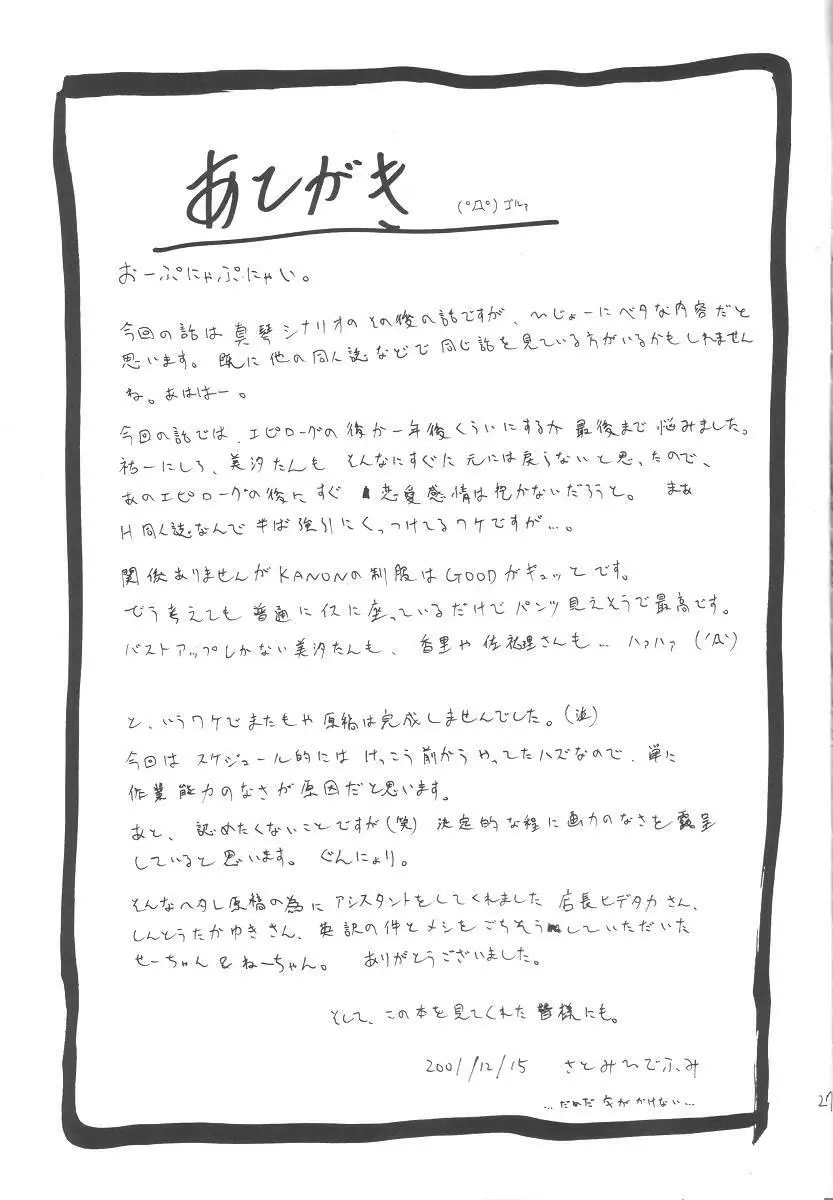 あとがき (ﾟДﾟ)ゴルァ
おーぷにゃぷにゃい。
今回の話は真琴シナリオのその後の話ですが、ひじょーにベタな内容だと
思います。既に他の同人誌などで同じ話を見ている方がいるかもしれません
ね。あははー。
今回の話では、エピローグの後か一年後くらいにするか最後まで悩みました。
祐一にしろ、美汐たんも そんなにすぐに元には戻らないと思ったので、
あのエピローグの後にすぐ 恋愛感情は抱かないだろうと。 まぁ
H同人誌なんで半ば強引にくっつけてるワケですが…。
関係ありませんがKANONの制服はGOODがギュッとです。
どう考えても普通にイスに座っているだけでパンツ見えそうで最高です。
バストアップしかない美汐たんも、香里や佐祐理さんも… ハァハァ (´Д`)
と、いうワケでまたもや原稿は完成しませんでした。(泣)
今回はスケジュール的にはけっこう前からやってたハズなので、単に
作業能力のなさが原因だと思います。
あと、認めたくないことですが(笑) 決定的な程に画力のなさを露呈
していると思います。ぐんにょり。
そんなヘタレ原稿の為にアシスタントをしてくれました 店長ヒデタカさん、
しんとうたかゆきさん、英訳の件とメシをごちそうしていただいた
せーちゃん&ねーちゃん。 ありがとうございました。
そして、この本を見てくれた皆様にも。
2001/12/15 さとみひでふみ
…だめだ字がかけない…
27